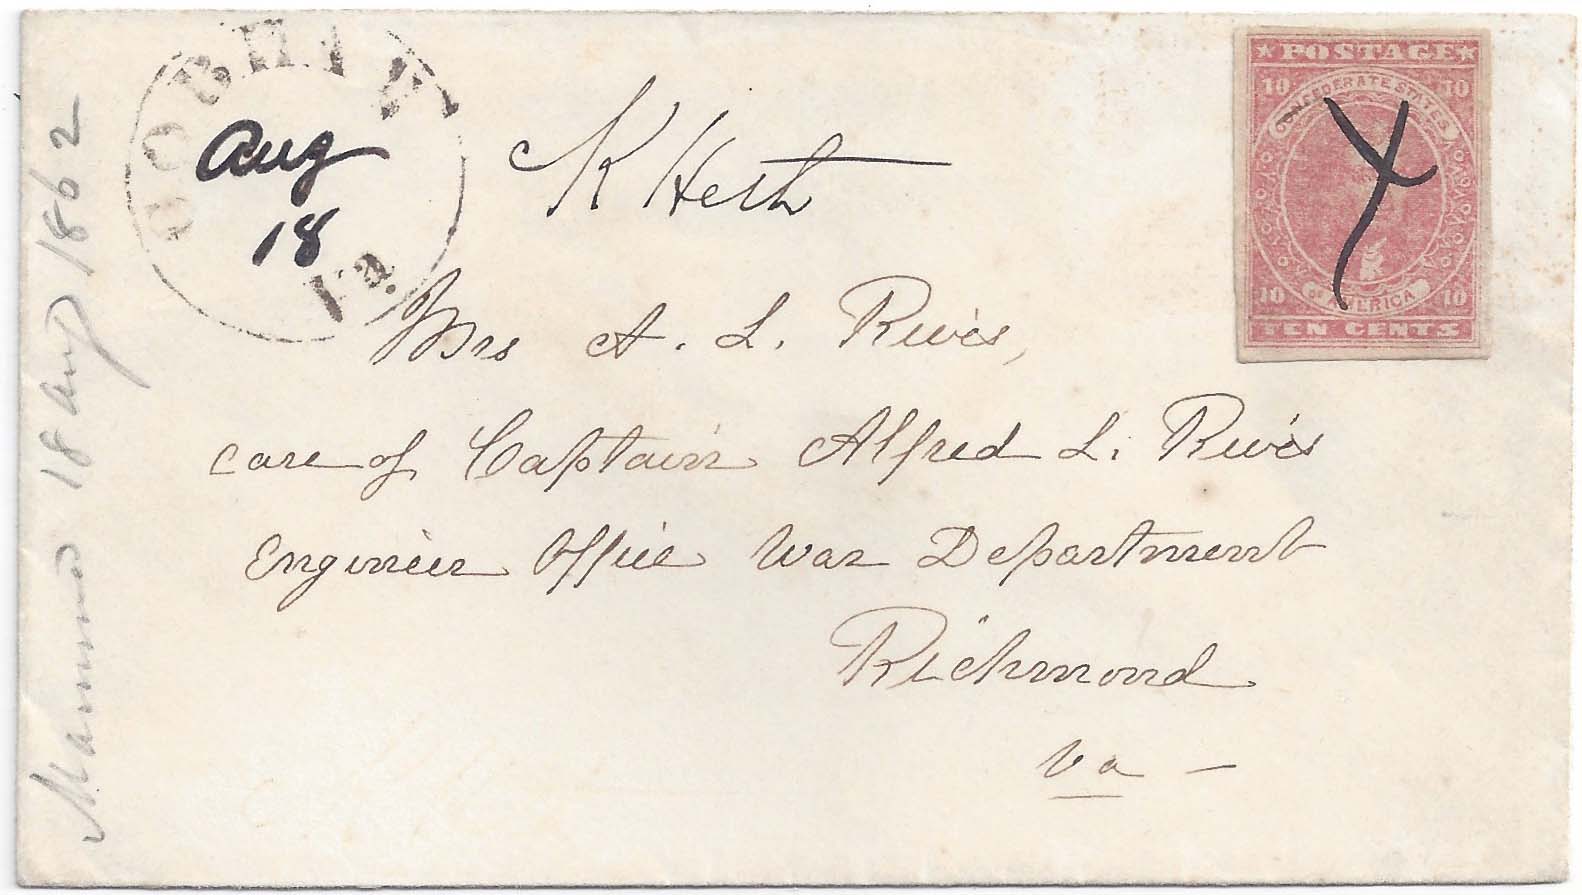 COBHAM
Aug
18
Va.
POSTAGE
10 10
CONFEDERATE STATES
OF AMERICA
10 10
TEN CENTS
Mrs A. L. Rives,
care of Captain Alfred L. Rives
Engineer Office War Department
Richmond
Va -
18 Aug 1862